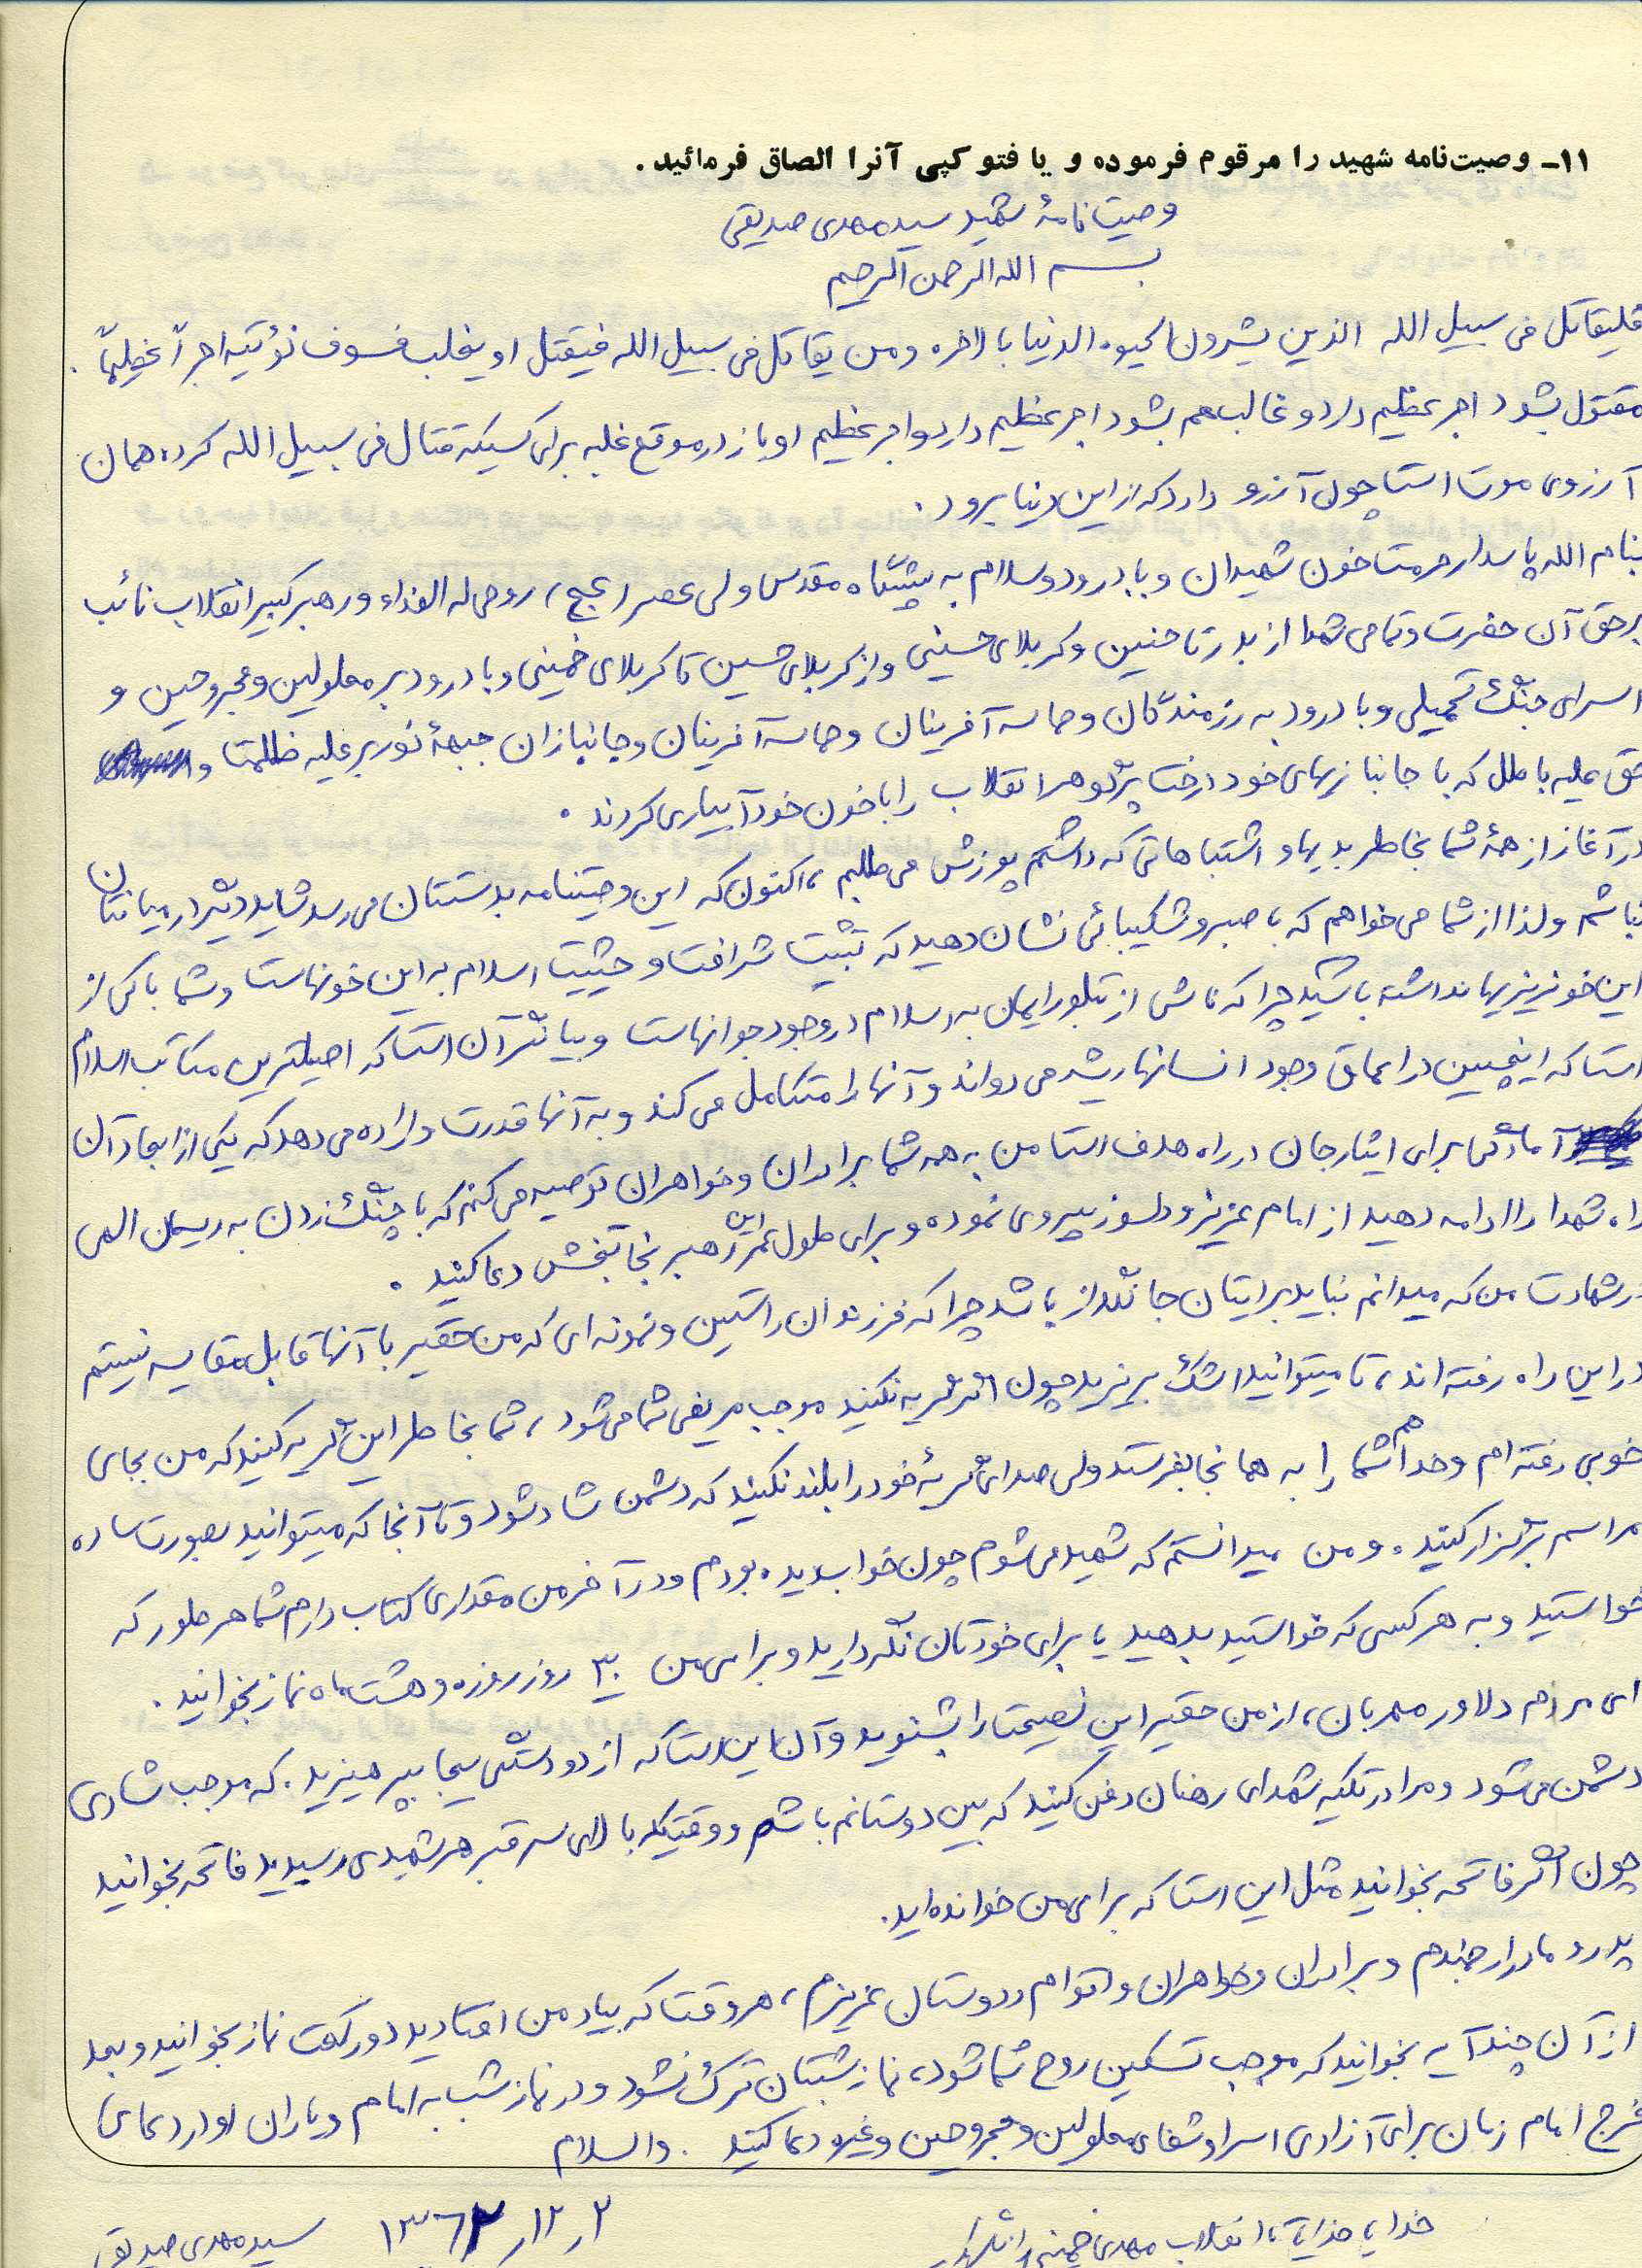 ۱۱ـ وصیت‌نامه شهید را مرقوم فرموده و یا فتوکپی آنرا الصاق فرمائید.
وصیت نامهٔ شهید سید مهدی صدیقی
بسم الله الرحمن الرحیم
فلیقاتل فی سبیل الله الذین یشرون الحیوه الدنیا بالاخره و من یقاتل فی سبیل الله فیقتل او یغلب فسوف نؤتیه اجراً عظیماً.
مقتول بشود اجر عظیم دارد و غالب هم بشود اجر عظیم دارد و اجر عظیم او باز در موقع غلبه برای کسیکه قتال فی سبیل الله کرده همان
آرزوی موت است چون آرزو دارد که از این دنیا برود.
بنام الله پاسدار حرمت خون شهیدان و با درود و سلام به پیشگاه مقدس ولی عصر (عج) روحی له الفداء و رهبر کبیر انقلاب نائب
برحق آن حضرت و تمامی شهدا از بدر تا حنین و کربلای حسینی و از کربلای حسین تا کربلای خمینی و با درود بر معلولین و مجروحین و
اسرای جنگ تحمیلی و با درود به رزمندگان و حماسه آفرینان و حماسه آفرینان و جانبازان جبههٔ نور بر علیه ظلمت و
حق علیه باطل که با جانبازیهای خود درخت پرگوهر انقلاب را با خون خود آبیاری کردند.
در آغاز از همهٔ شما بخاطر بدیها و اشتباهاتی که داشتم پوزش می‌طلبم، اکنون که این وصیتنامه بدستتان می‌رسد شاید دیگر در میانتان
نباشم ولذا از شما می‌خواهم که با صبر و شکیبائی نشان دهید که تثبیت شرافت و حیثیت اسلام به این خونهاست و شما باکی از
این خونریزیها نداشته باشید چرا که ناشی از تبلور ایمان به اسلام در وجود جوانهاست و بیانگر آن است که اصیلترین مکاتب اسلام
است که اینچنین در اعماق وجود انسانها ریشه می‌دواند و آنها را متکامل می‌کند و به آنها قدرت و اراده می‌دهد که یکی از ابعاد آن
آمادگی برای ایثار جان در راه هدف است من به همه شما برادران و خواهران توصیه می‌کنم که با چنگ زدن به ریسمان الهی
راه شهدا را ادامه دهید از امام عزیز و دلسوز پیروی نموده و برای طول عمر این رهبر نجاتبخش دعا کنید.
در شهادت من که میدانم نباید برایتان جانگداز باشد چرا که فرزندان راستین و نمونه‌ای که من حقیر با آنها قابل مقایسه نیستم
در این راه رفته‌اند، تا میتوانید اشک بریزید چون اگر گریه نکنید موجب مریضی شما می‌شود، شما بخاطر این گریه کنید که من بجای
خوبی رفته‌ام و خدا هم شما را به همانجا بفرستد ولی صدای گریهٔ خود را بلند نکنید که دشمن شاد شود و تا آنجا که میتوانید بصورت ساده
مراسم برگزار کنید. و من میدانستم که شهید می‌شوم چون خواب دیده بودم و در آخر من مقداری کتاب دارم شما هر طور که
خواستید و به هر کسی که خواستید بدهید یا برای خودتان نگه دارید و برای من ۳۰ روز روزه و هشت ماه نماز بخوانید.
ای مردم دلاور مهربان، از من حقیر این نصیحت را بشنوید و آن این است که از دو دستگی بیجا بپرهیزید. که موجب شادی
دشمن می‌شود و مرا در تکیه شهدای رهنان دفن کنید که بین دوستانم باشم و وقتیکه بالای سر قبر هر شهیدی رسیدید فاتحه بخوانید
چون اگر فاتحه بخوانید مثل این است که برای من خوانده‌اید.
پدر و مادر ارجمندم و برادران و خواهران و اقوام و دوستان عزیزم، هر وقت که بیاد من افتادید دو رکعت نماز بخوانید و بعد
از آن چند آیه بخوانید که موجب تسکین روح شما شود، نماز شبتان ترک نشود و در نماز شب به امام و یاران او و دعای
فرج امام زمان برای آزادی اسرا و شفای معلولین و مجروحین و غیره دعا کنید. والسلام
خدایا خدایا تا انقلاب مهدی خمینی را نگهدار
۱۳۶۲/۱۲/۲
سید مهدی صدیقی